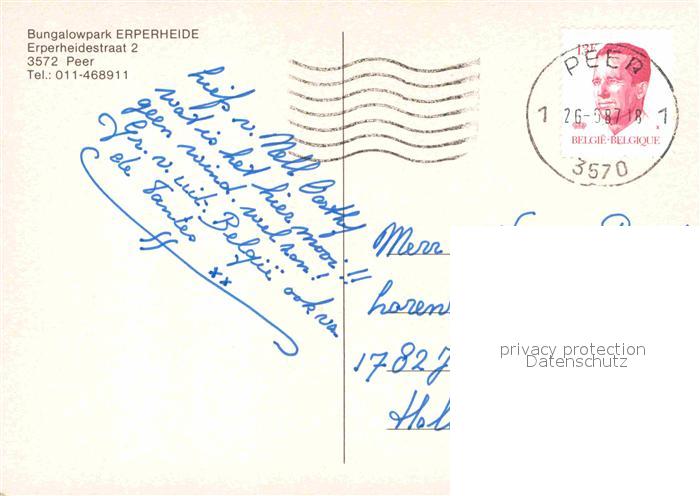 Bungalowpark ERPERHEIDE
Erperheidestraat 2
3572 Peer
Tel.: 011-468911
liefs v. Nell Cathy
wat is het hier mooi!!
geen wind. wel zon!
Gr. v. uit. België ook va
de Tantes
13F
BELGIË-BELGIQUE
PEER
1 26--87-18 1
3570
Merr
Laren
1782J
Hol
privacy protection
Datenschutz